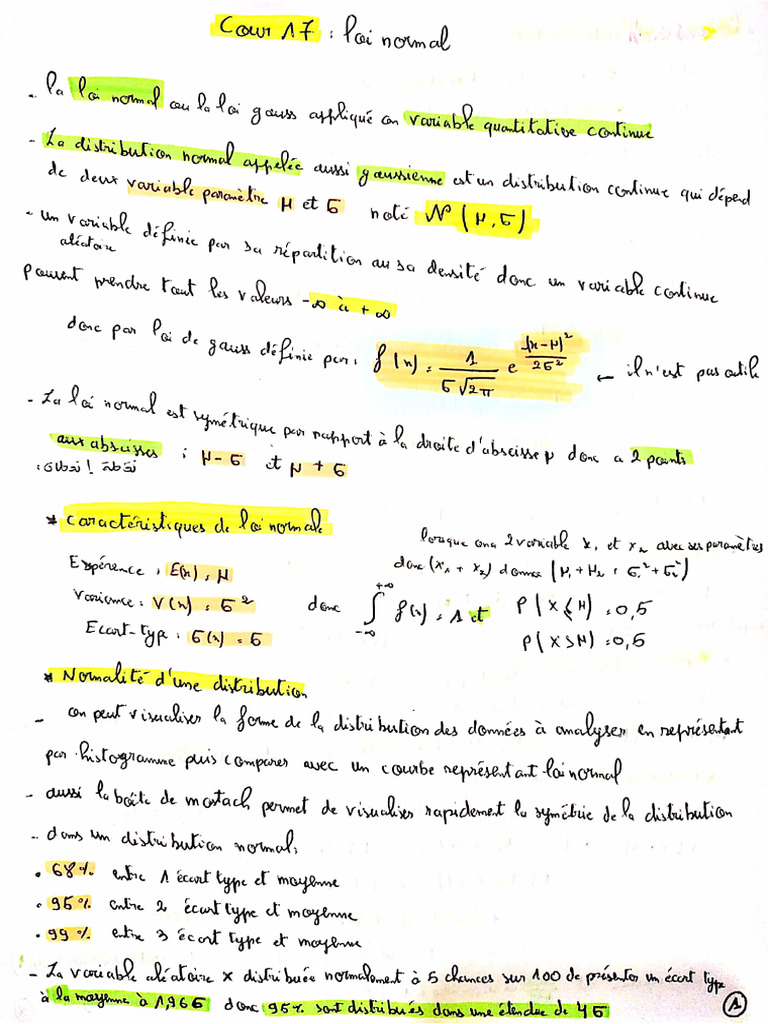 Cour 17 : loi normal
- la loi normal ou la loi gauss appliqué on variable quantitative continue
- La distribution normal appelée aussi gaussienne est un distribution continue qui dépend
de deux variable paramètre μ et σ noté N(μ,σ)
- un variable définie par sa répartition au sa densité donc un variable continue
aléatoire
peuvent prendre tout les valeurs -∞ à +∞
donc par loi de gauss définie par : f(x) = 1/(σ√2π) e (x-μ)²/2σ² ← il n'est pas utile
- La loi normal est symétrique par rapport à la droite d'abscisse μ donc a 2 points
aux abscisses ; μ-σ et μ+σ
* Caractéristiques de loi normale
lorsque on a 2 variable x₁ et x₂ avec ses paramètres
donc (x₁ + x₂) donnee (μ₁ + μ₂ ; σ₁² + σ₂²)
Espérence : E(x) = μ
Variance : V(x) = σ² donc ∫ -∞ +∞ f(x) = 1 et P(X⩽μ) = 0,5
Ecart-type : σ(x) = σ P(X>μ) = 0,5
* Normalité d'une distribution
- on peut visualiser la forme de la distribution des données à analyser en représentant
par histogramme puis comparer avec un courbe représentant loi normal
- aussi la boîte de mostach permet de visualises rapidement la symétrie de la distribution
- dans un distribution normal :
• 68% entre 1 écart type et moyenne
• 95% entre 2 écart type et moyenne
• 99% entre 3 écart type et moyenne
- La variable aléatoire x distribuée normalement à 5 chances sur 100 de présenter un écart type
à la moyenne à 1,96σ donc 95% sont distribués dans une étendee de 4σ
1